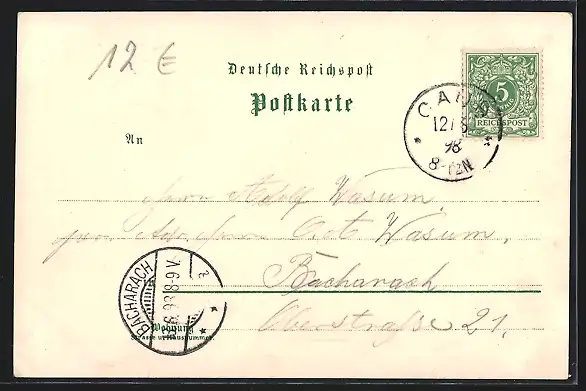 12 €
Deutsche Reichspost
Postkarte
5
REICHSPOST
CAUB
12/6
98
8-12N
An
Herrn Adolf Wasum.
Herrn Wasum,
Bacharach
BACHARACH
.6.98 8-9 V.
Wohnung
Oberstraße 21.